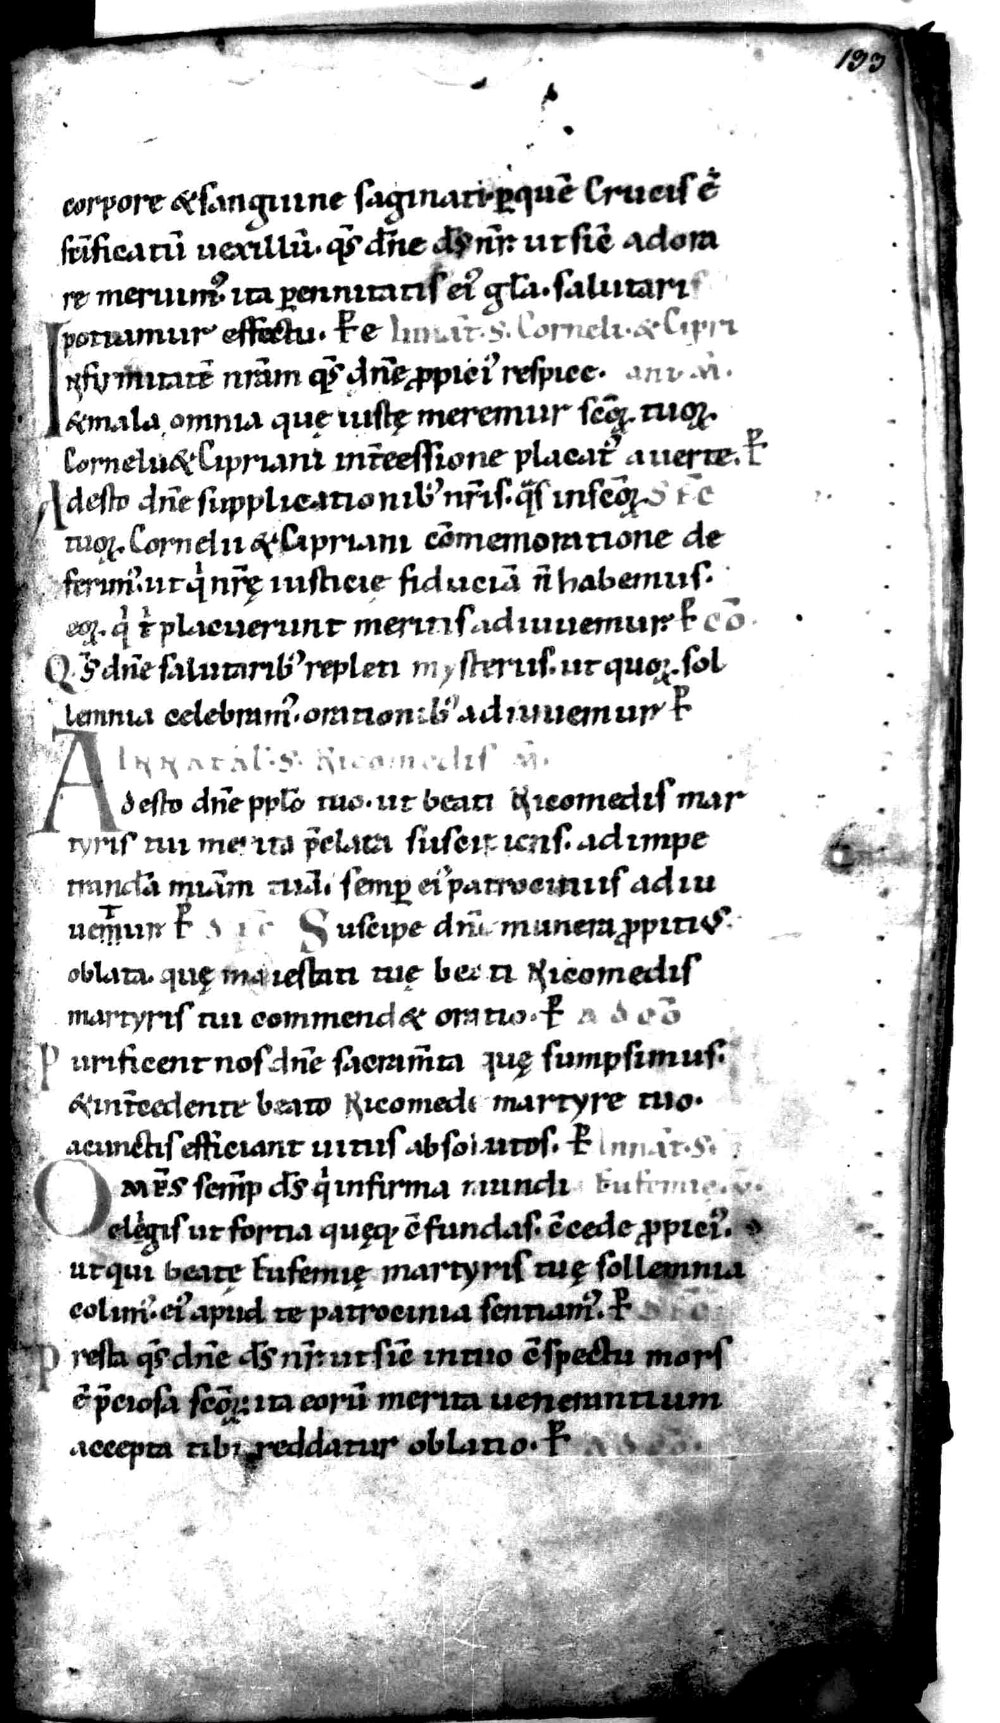 193
corpore & sanguine saginati· ꝑquē Crucis ē
sc̄ificatū uexillū· qs̄ dn̄e ds̄ nr̄· ut sic̄ adora
re meruim᷒· ita ꝑennitatis ei᷒ gl̄a· salutari
potiamur effectu· ꝑ e In nat̄· S· Corneli· & Cipri
Infirmitatē nr̄am qs̄ dn̄e ꝓpici᷒ respice· ani M̄·
& mala omnia quę iustę meremur scōꝝ tuoꝝ
Cornelii & Cipriani int̄cessione placat᷒ auerte· ꝑ
Adesto dn̄e supplicationib᷒ nr̄is· qs̄ in scōꝝ Sec̄
tuoꝝ Cornelii & Cipriani cōmemoratione de
ferim᷒· ut qͥ nr̄ę iusticię fiduciā n̄ habemus·
eoꝝ qͥ tͥ placuerunt meritis adiuuemur· ꝑ cō
Qs̄ dn̄e salutarib᷒ repleti mysteriis· ut quoꝝ sol
lemnia celebram᷒· orationib᷒ adiuuemur ꝑ
In natal· S· Nicomedis M̄·
Adesto dn̄e ppl̄o tuo· ut beati Nicomedis mar
tyris tui merita p̄clara suscipiens· ad impe
trandā miām tuā· semꝑ ei᷒ patrociniis adiu
uemur ꝑ Sec̄ Suscipe dn̄e munera ꝓpitius
oblata· quę maiestati tuę beati Nicomedis
martyris tui commend& oratio· ꝑ ad cō
Purificent nos dn̄e sacram̄ta quę sumpsimus·
& int̄cedente beato Nicomede martyre tuo·
a cunctis efficiant uitiis absolutos· ꝑ In nat̄· S·
Omp̄s semp̄ ds̄ qͥ infirma mundi Eufemię· V̄·
elegis ut fortia quęq· c̄fundas· c̄cede ꝓpici᷒·
ut qui beatę Eufemię martyris tuę sollemnia
colim᷒· ei᷒ apud te patrocinia sentiam᷒· ꝑ Sec̄
Presta qs̄ dn̄e ds̄ nr̄· ut sic̄ in tuo c̄spectu mors
ē p̄ciosa scōꝝ· ita eorū merita uenerantium
accepta tibi reddatur oblatio· ꝑ ad cō·